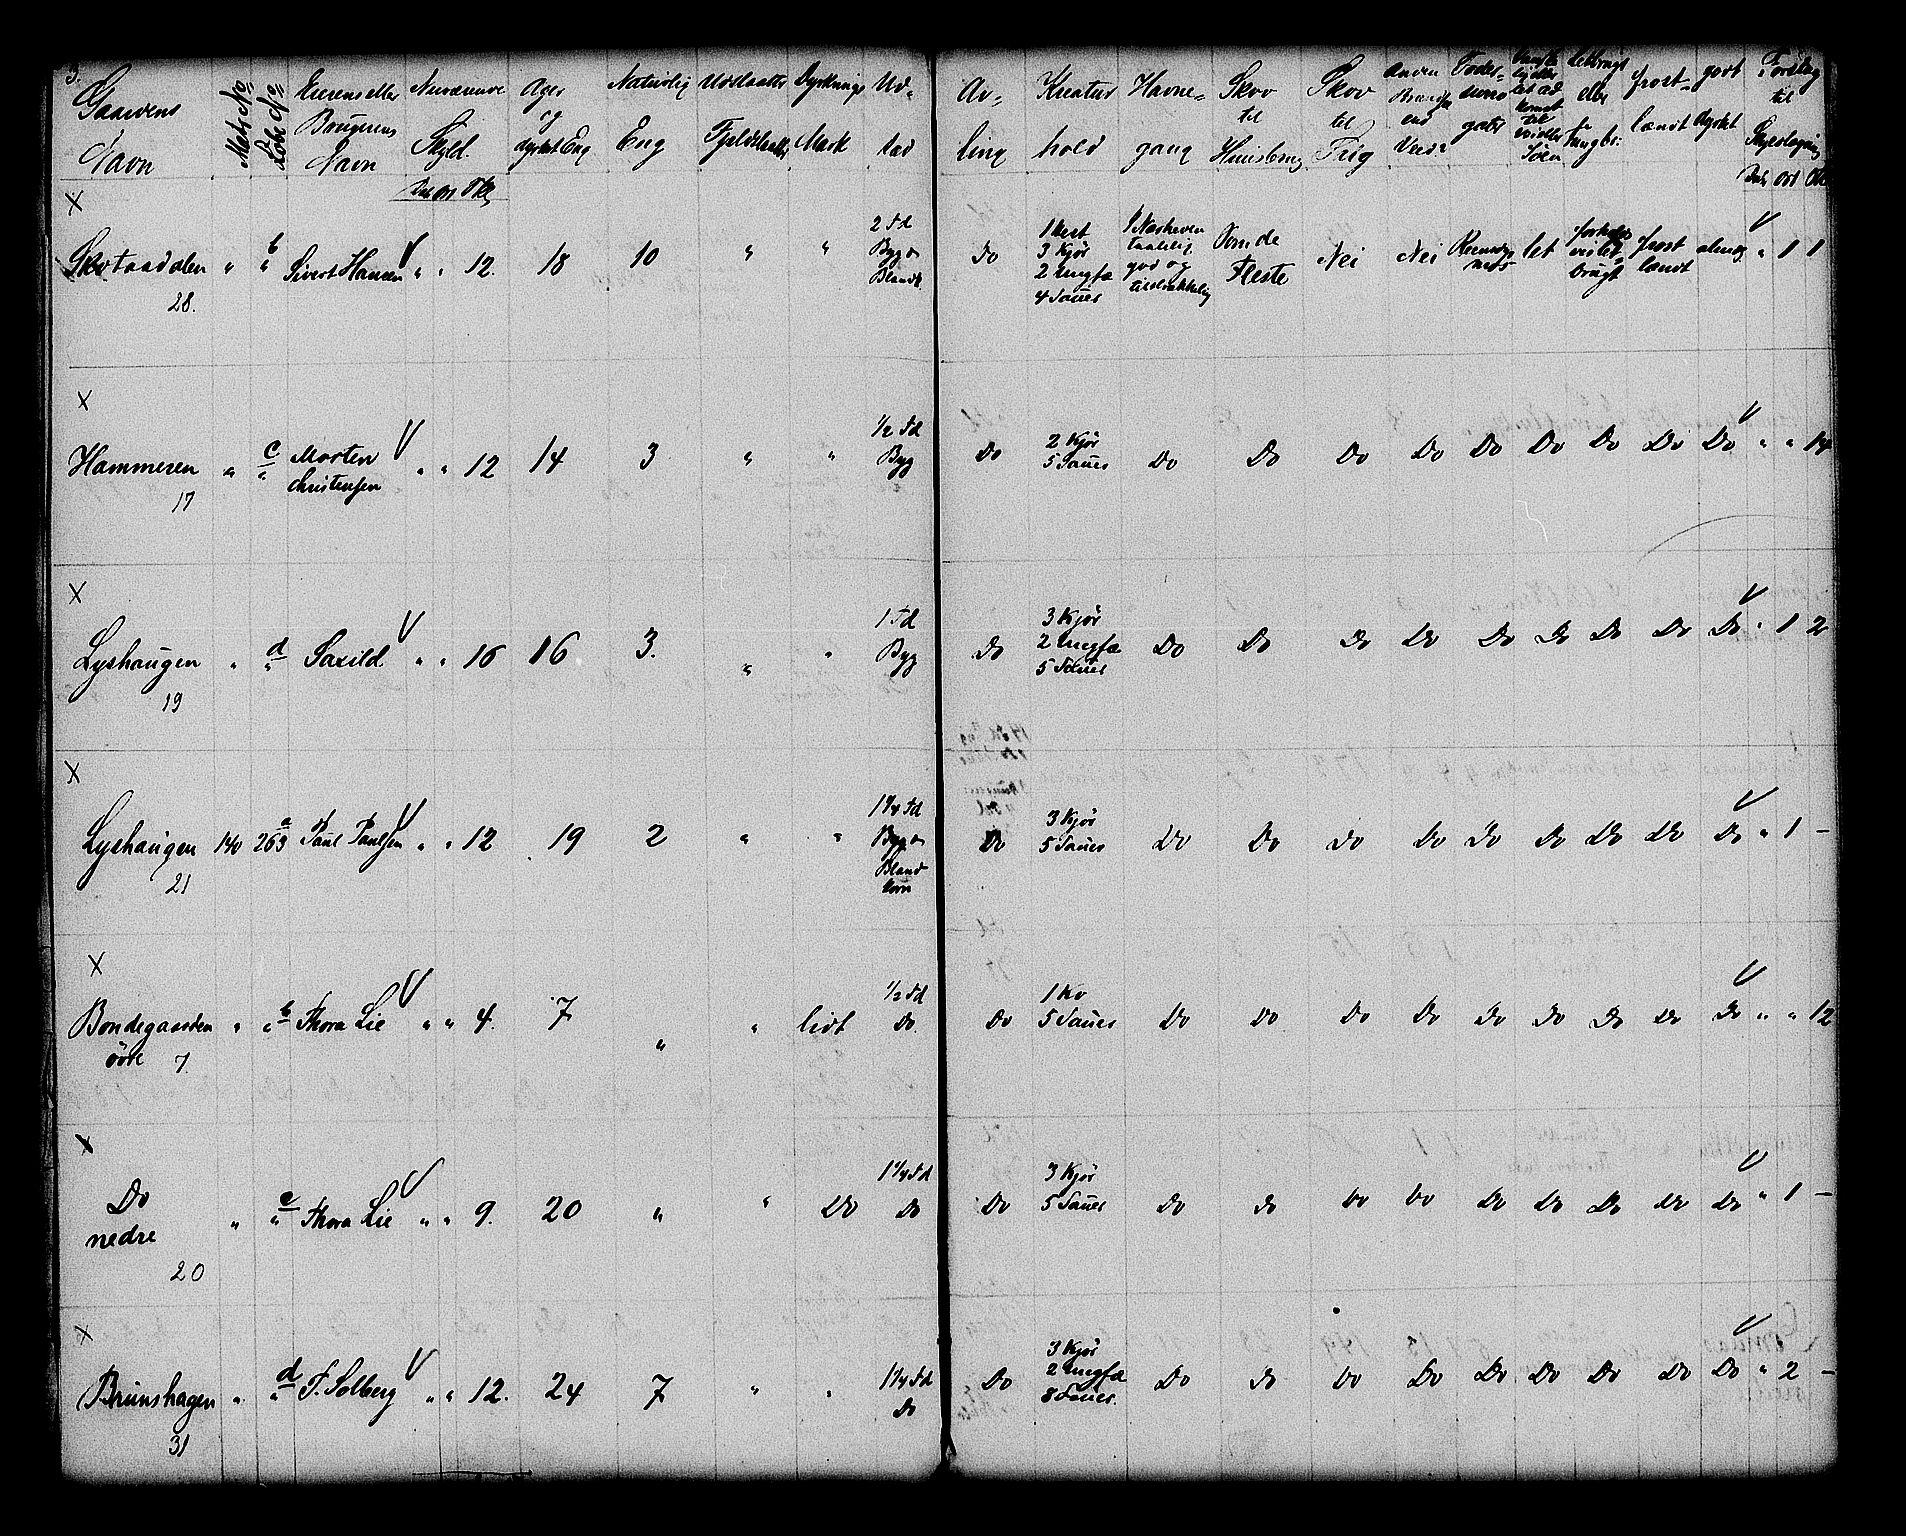 3.
Gaardens Navn | Mats No | Løbe No | Eierens eller Brugerens Navn | Nuværende Skyld. Dal Ort Sk | Ager og dyrket Eng | Naturlig Eng | Udslaatter Fjeldslaatter | Dyrknings Mark | Udsæd | Avling | Kreaturhold | Havnegang | Skov til Huusbrug | Skov til Frig | Anden end Ved: | godt dyrket | Forslag til Skyldlægning Dal Ort Sk
X
Skotaadalen 28. | " | b " | Sivert Hansen | " " 12. | 18 | 10 | " | " | 2 Td Byg o Blandk | Do | 1 Hest 3 Kjør 2 Ungfæ 4 Sauer | taalelig god og tilstrækkelig | Somde Fleste | Nei | Nei | let | forholdsvislet brugt | frost lændt | " 1 1
X
Hammeren 17 | " | c " | Morten Christensen | " " 12 | 14 | 3 | " | " | 1/2 Td Byg | Do | 2 Kjør 5 Sauer | Do | Do | Do | Do | Do | Do | Do | Do | Do | " " 14
X
Lyshaugen 19 | " | d " | Saxild | " " 16 | 16 | 3. | " | " | 1 Td Byg | Do | 3 Kjør 2 Ungfæ 5 Sauer | Do | Do | Do | Do | Do | Do | Do | Do | Do | " 1 2
X
Lyshaugen 21 | 140 | 263 a | Paul Paulsen | " " 12 | 19 | 2 | " | " | 1 1/4 Td Byg o Bland korn | Do | 3 Kjør 5 Sauer | Do | Do | Do | Do | Do | Do | Do | Do | Do | " 1 –
X
Bondegaarden øvre 7. | " | b " | Thora Lie | " " 4. | 7 | " | " | lidt | 1/2 Td Do. | Do | 1 Ko 5 Sauer | Do | Do | Do | Do | Do | Do | Do | Do | Do | " " 12
X
Do nedre 20 | " | c " | Thora Lie | " " 9. | 20 | " | " | Do | 1 1/4 Td Do | Do | 3 Kjør 5 Sauer | Do | Do | Do | Do | Do | Do | Do | Do | Do | " 1 –
X
Brunshagen 31 | " | d " | F. Solberg | " " 12. | 24 | 7 | " | " | 1 1/4 Td Do | Do | 3 Kjør 2 Ungfæ 8 Sauer. | Do | Do | Do | Do | Do | Do | Do | Do | Do | " 2 –